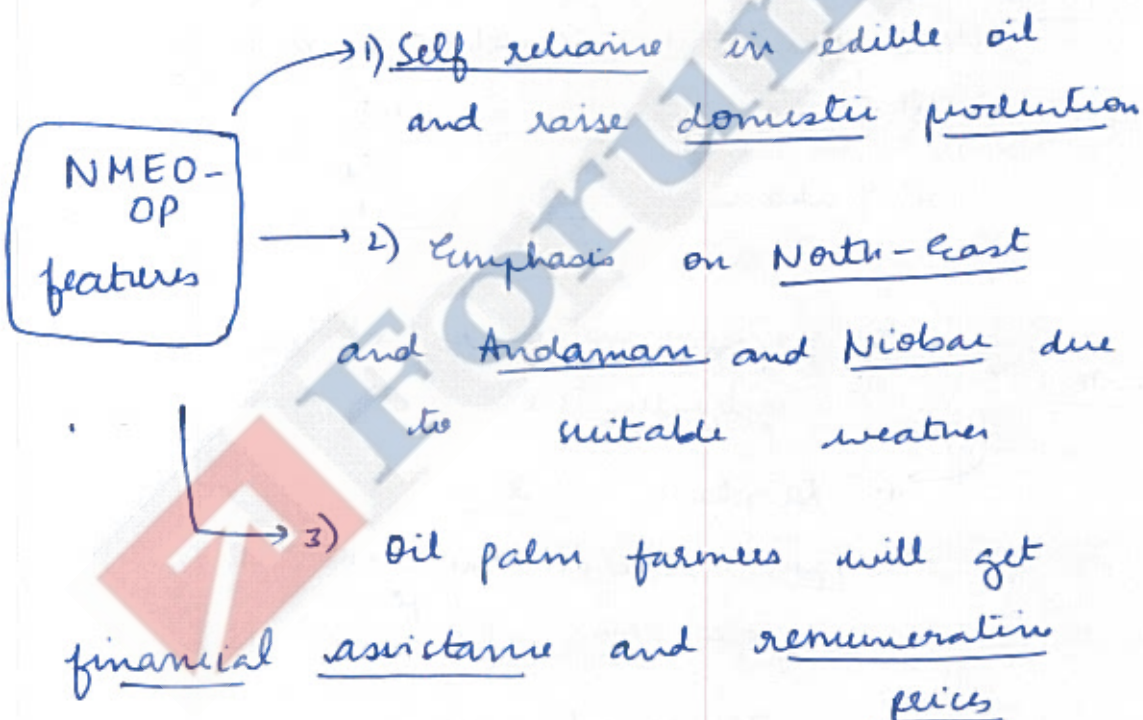 1) Self reliance in edible oil
and raise domestic production
NMEO-
OP
features
2) Emphasis on North-East
and Andaman and Nicobar due
to suitable weather
3) Oil palm farmers will get
financial assistance and remunerative
prices
Forum